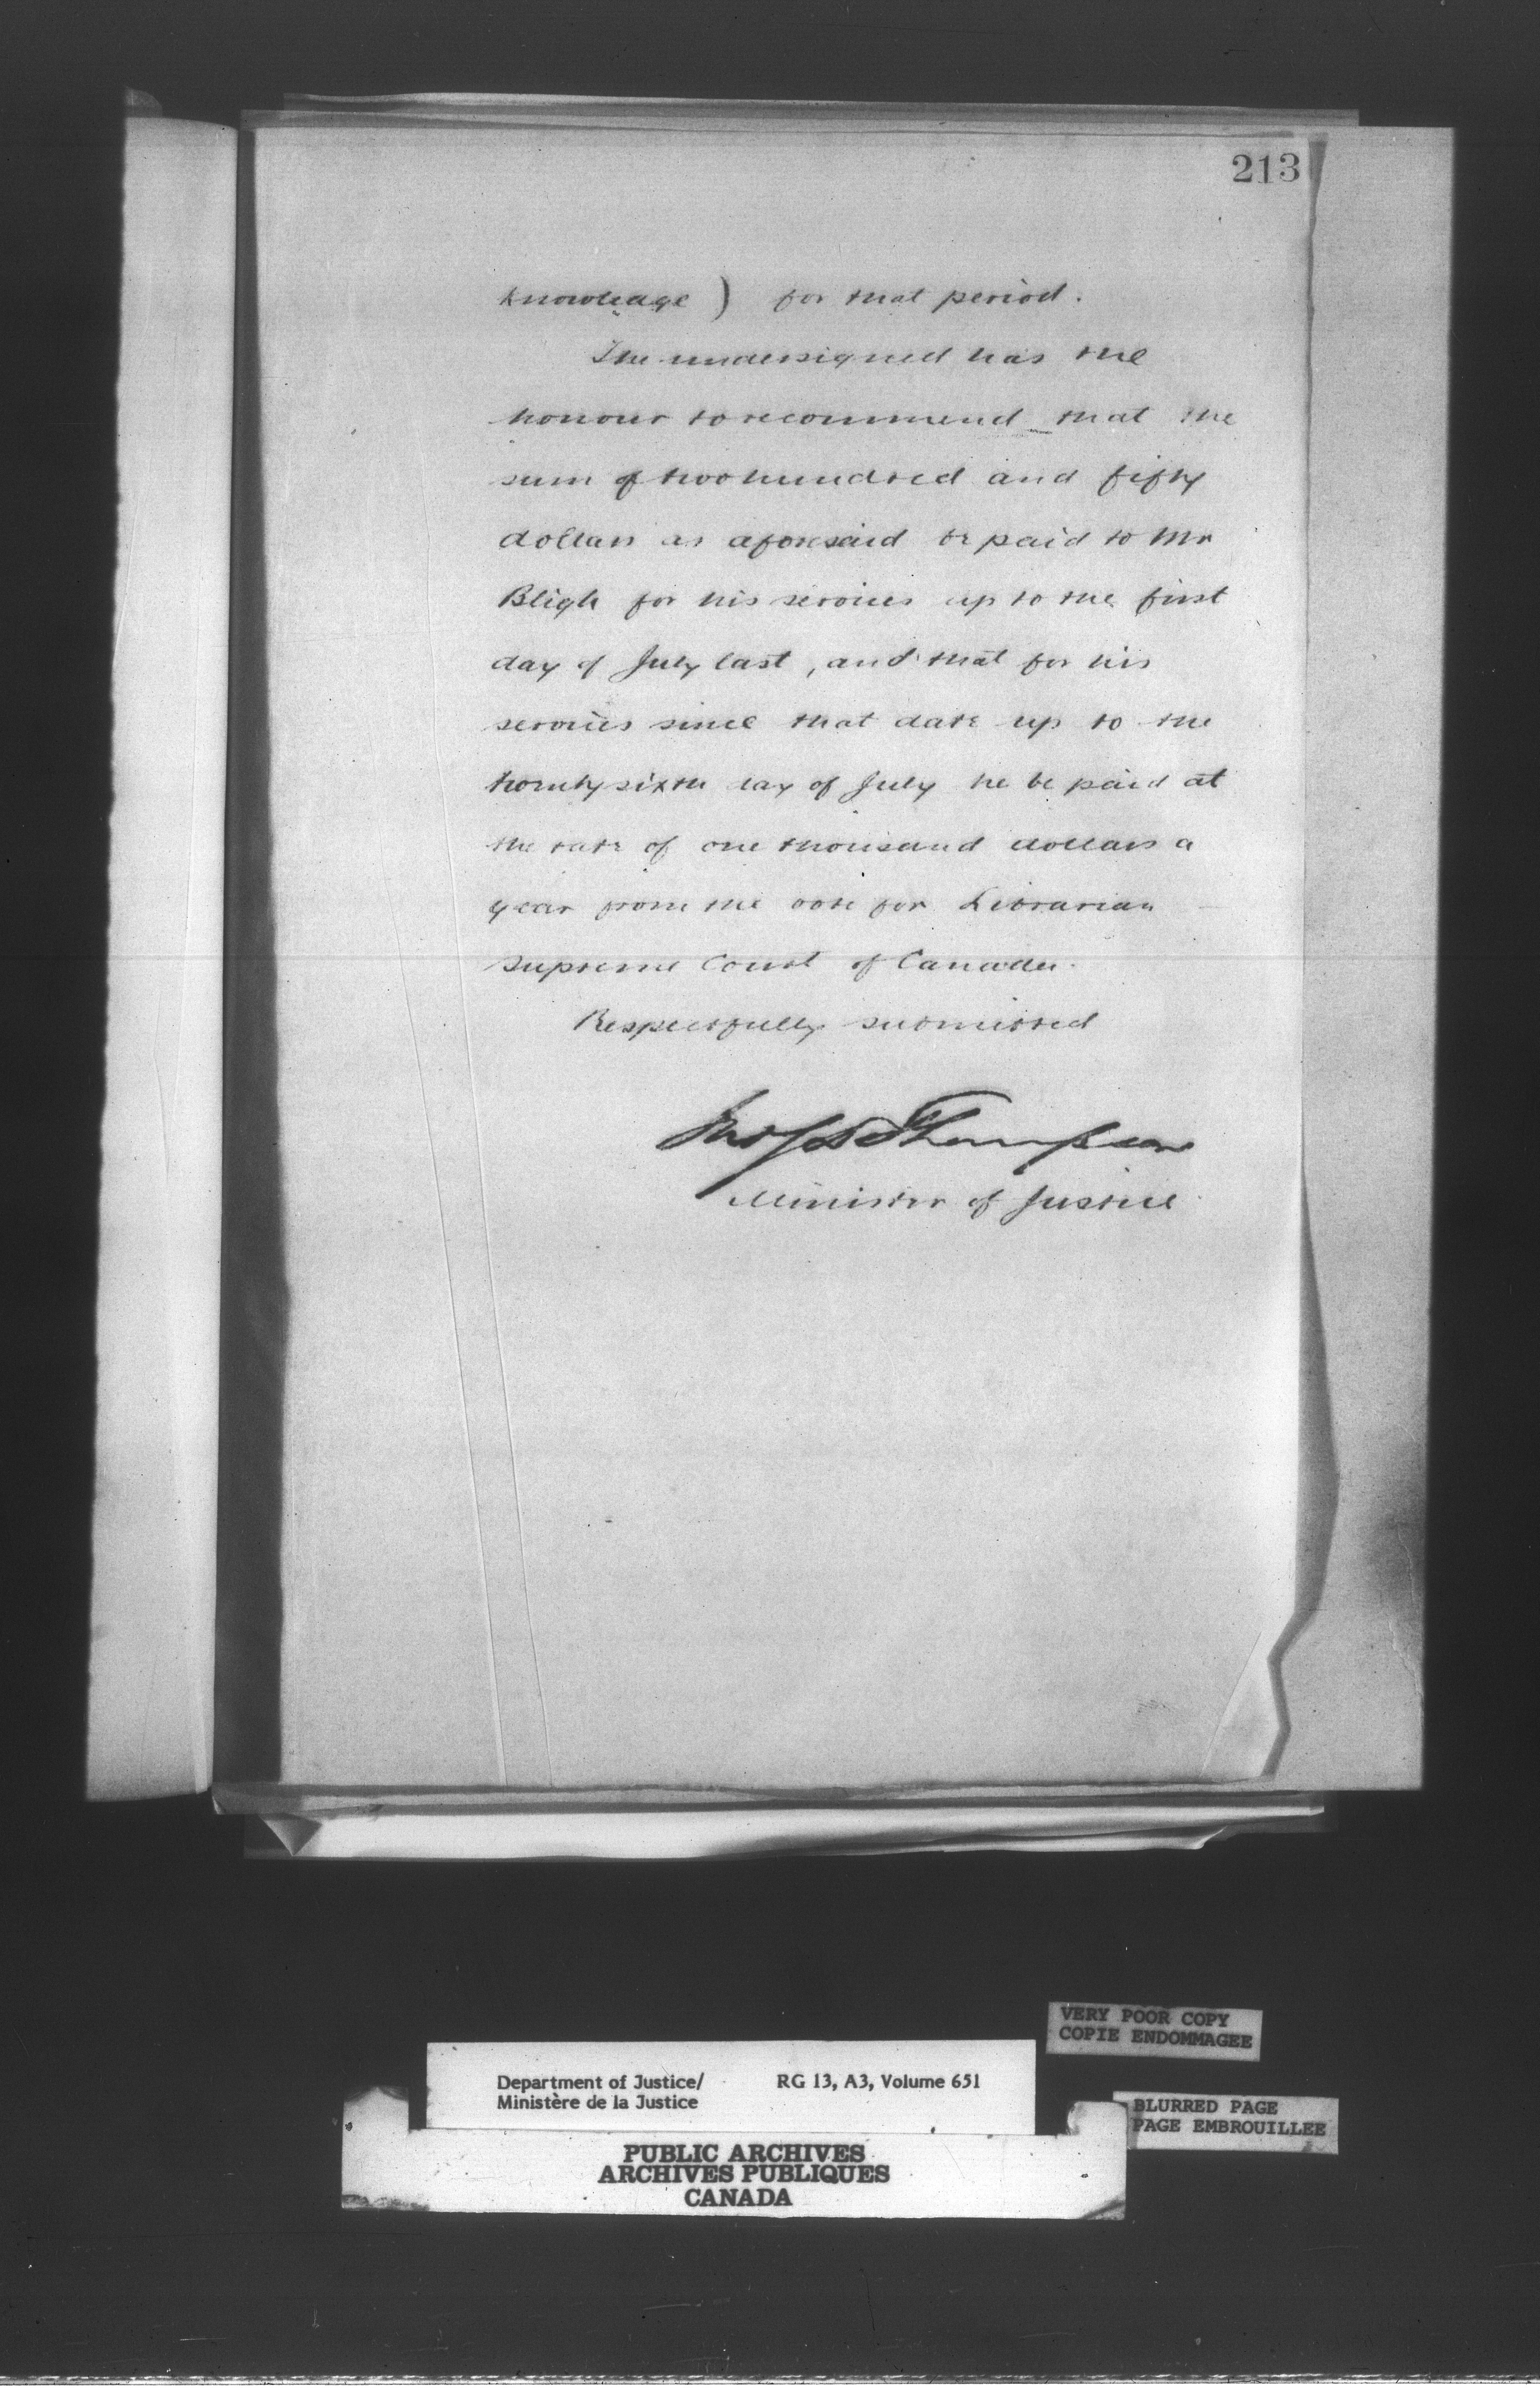 213
knowledge) for that period.
The undersigned has the
honour to recommend that the
sum of two hundred and fifty
dollars as aforesaid be paid to Mr
Bligh for his services up to the first
day of July last, and that for his
services since that date up to the
twenty sixth day of July he be paid at
the rate of one thousand dollars a
year from the vote for Librarian
Supreme Court of Canada.
Respectfully submitted
Jno S D Thompson
Minister of Justice
VERY POOR COPY
COPIE ENDOMMAGEE
Department of Justice/ RG 13, A3, Volume 651
Ministère de la Justice
BLURRED PAGE
PAGE EMBROUILLEE
PUBLIC ARCHIVES
ARCHIVES PUBLIQUES
CANADA